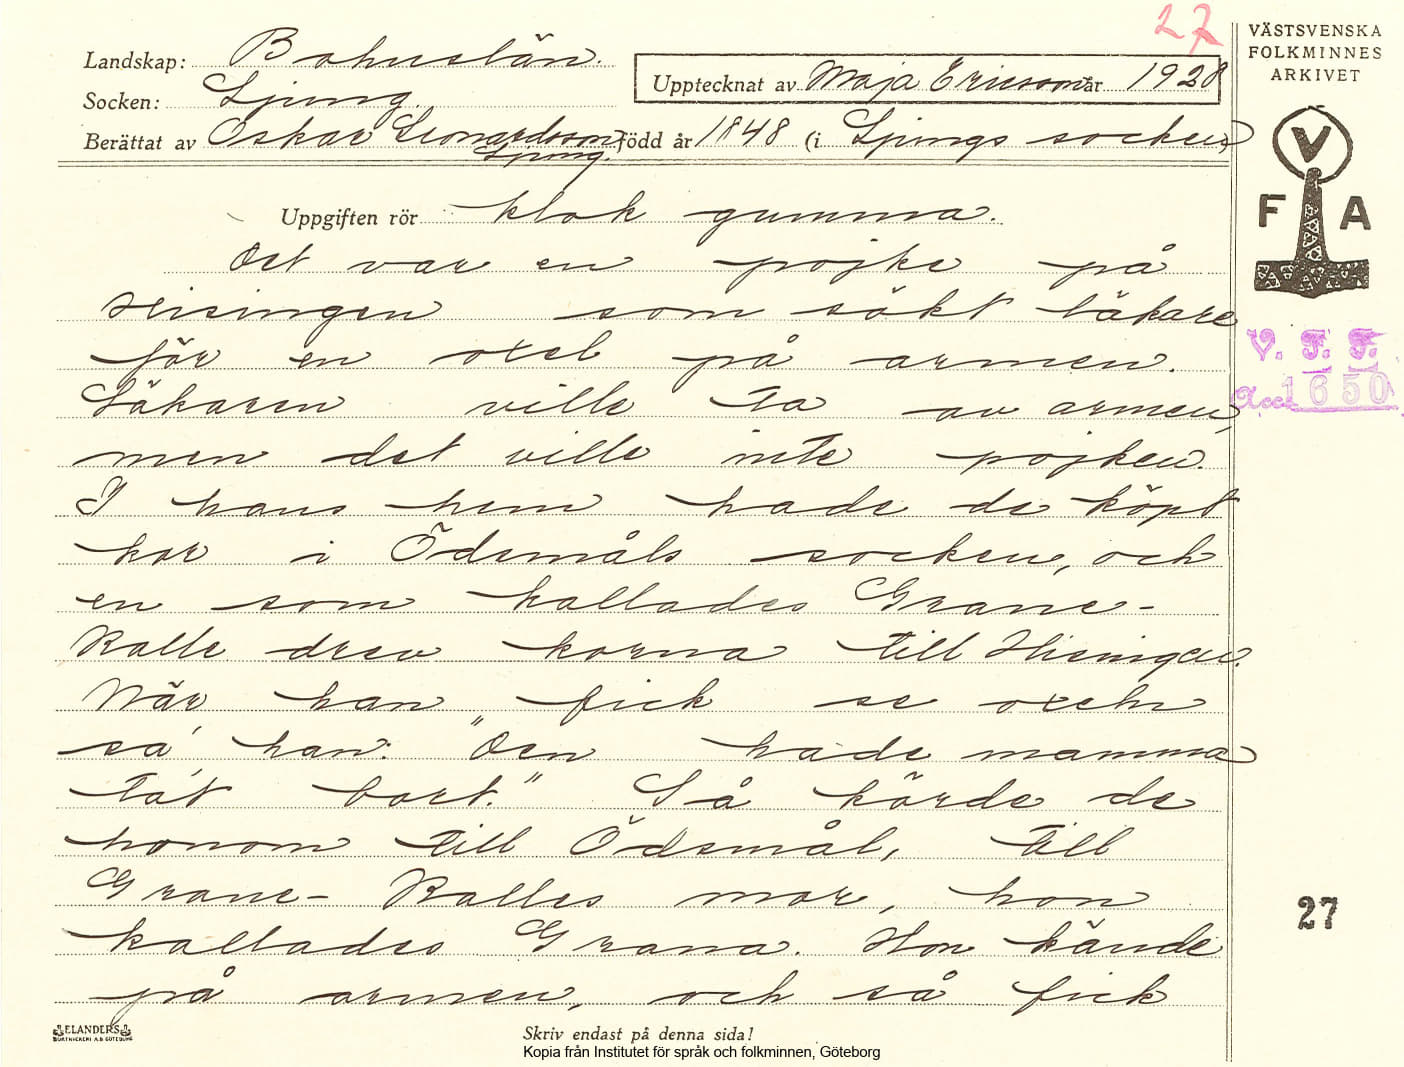 27
VÄSTSVENSKA
FOLKMINNES
ARKIVET
Landskap: Bohuslän.
Socken: Ljung.
Upptecknat av Maja Ericsson år 1928
Berättat av Oskar Leonardsson född år 1848 (i Ljungs socken)
Ljung.
V
F A
Uppgiften rör klok gumma.
Det var en pojke på
Hisingen som sökt läkare
för en oxel på armen.
Läkaren ville ta av armen,
men det ville inte pojken.
I hans hem hade de köpt
kor i Ödsmåls socken, och
en som kallades Grane-
Kalle drev korna till Hisingen.
När han fick se oxeln
sa' han: "Den hade mamma
ta't bort." Så körde de
honom till Ödsmål, till
Grane-Kalles mor, hon
kallades Grana. Hon kände
på armen, och så fick
V. F. F.
Acc. 1650
27
ELANDERS
BOKTRYCKERI A.B. GÖTEBORG
Skriv endast på denna sida!
Kopia från Institutet för språk och folkminnen, Göteborg